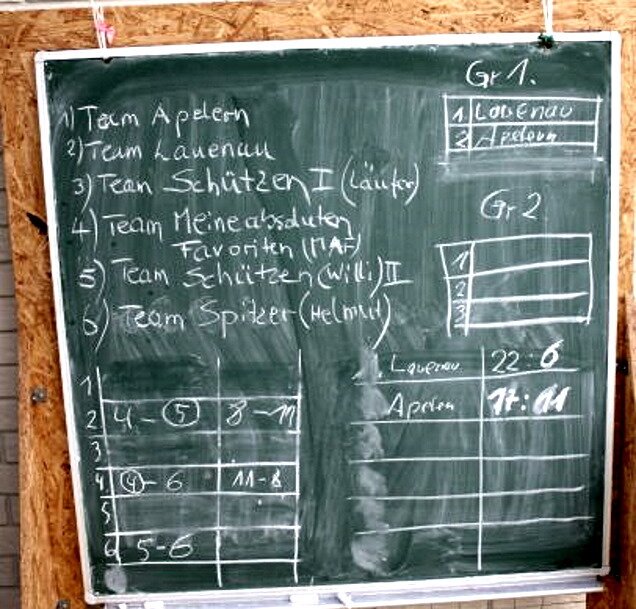 Gr 1.
1 Lauenau
2 Apelern
1) Team Apelern
2) Team Lauenau
3) Team Schützen I (Läufer)
4) Team Meine absoluten
Favoriten (MAF)
5) Team Schützen (Willi) II
6) Team Spitzer (Helmut)
Gr 2
1
2
3
1
2 4 - 5 8 - 11
3
4 4 - 6 11 - 8
5
6 5 - 6
Lauenau 22 : 6
Apelern 17 : 11